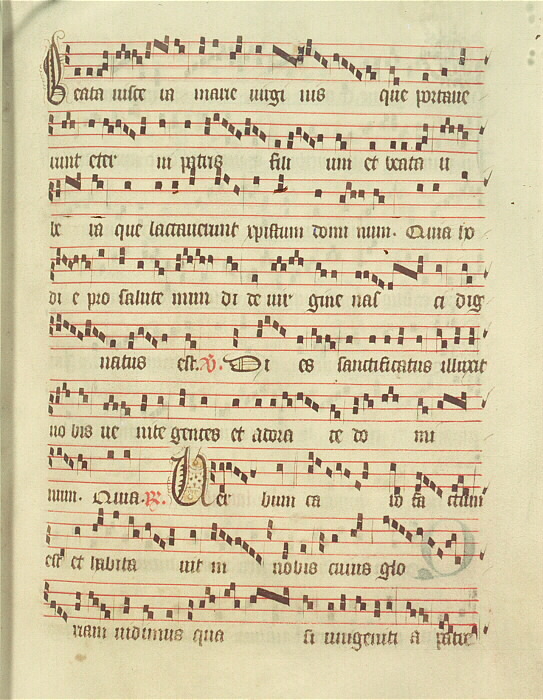 Beata visce ra marie virgi nis que portave
runt eter ni patris fili um et beata u
be ra que lactaverunt xpistum domi num. Quia ho
di e pro salute mun di de vir gine nas ci dig
natus est. V. Di es sanctificatus illuxit
no bis ve nite gentes et adora te do mi
num. Quia. R. Ver bum ca ro fa ctum
est et habita vit in nobis cuius glo
riam vidimus qua si unigeniti a patre